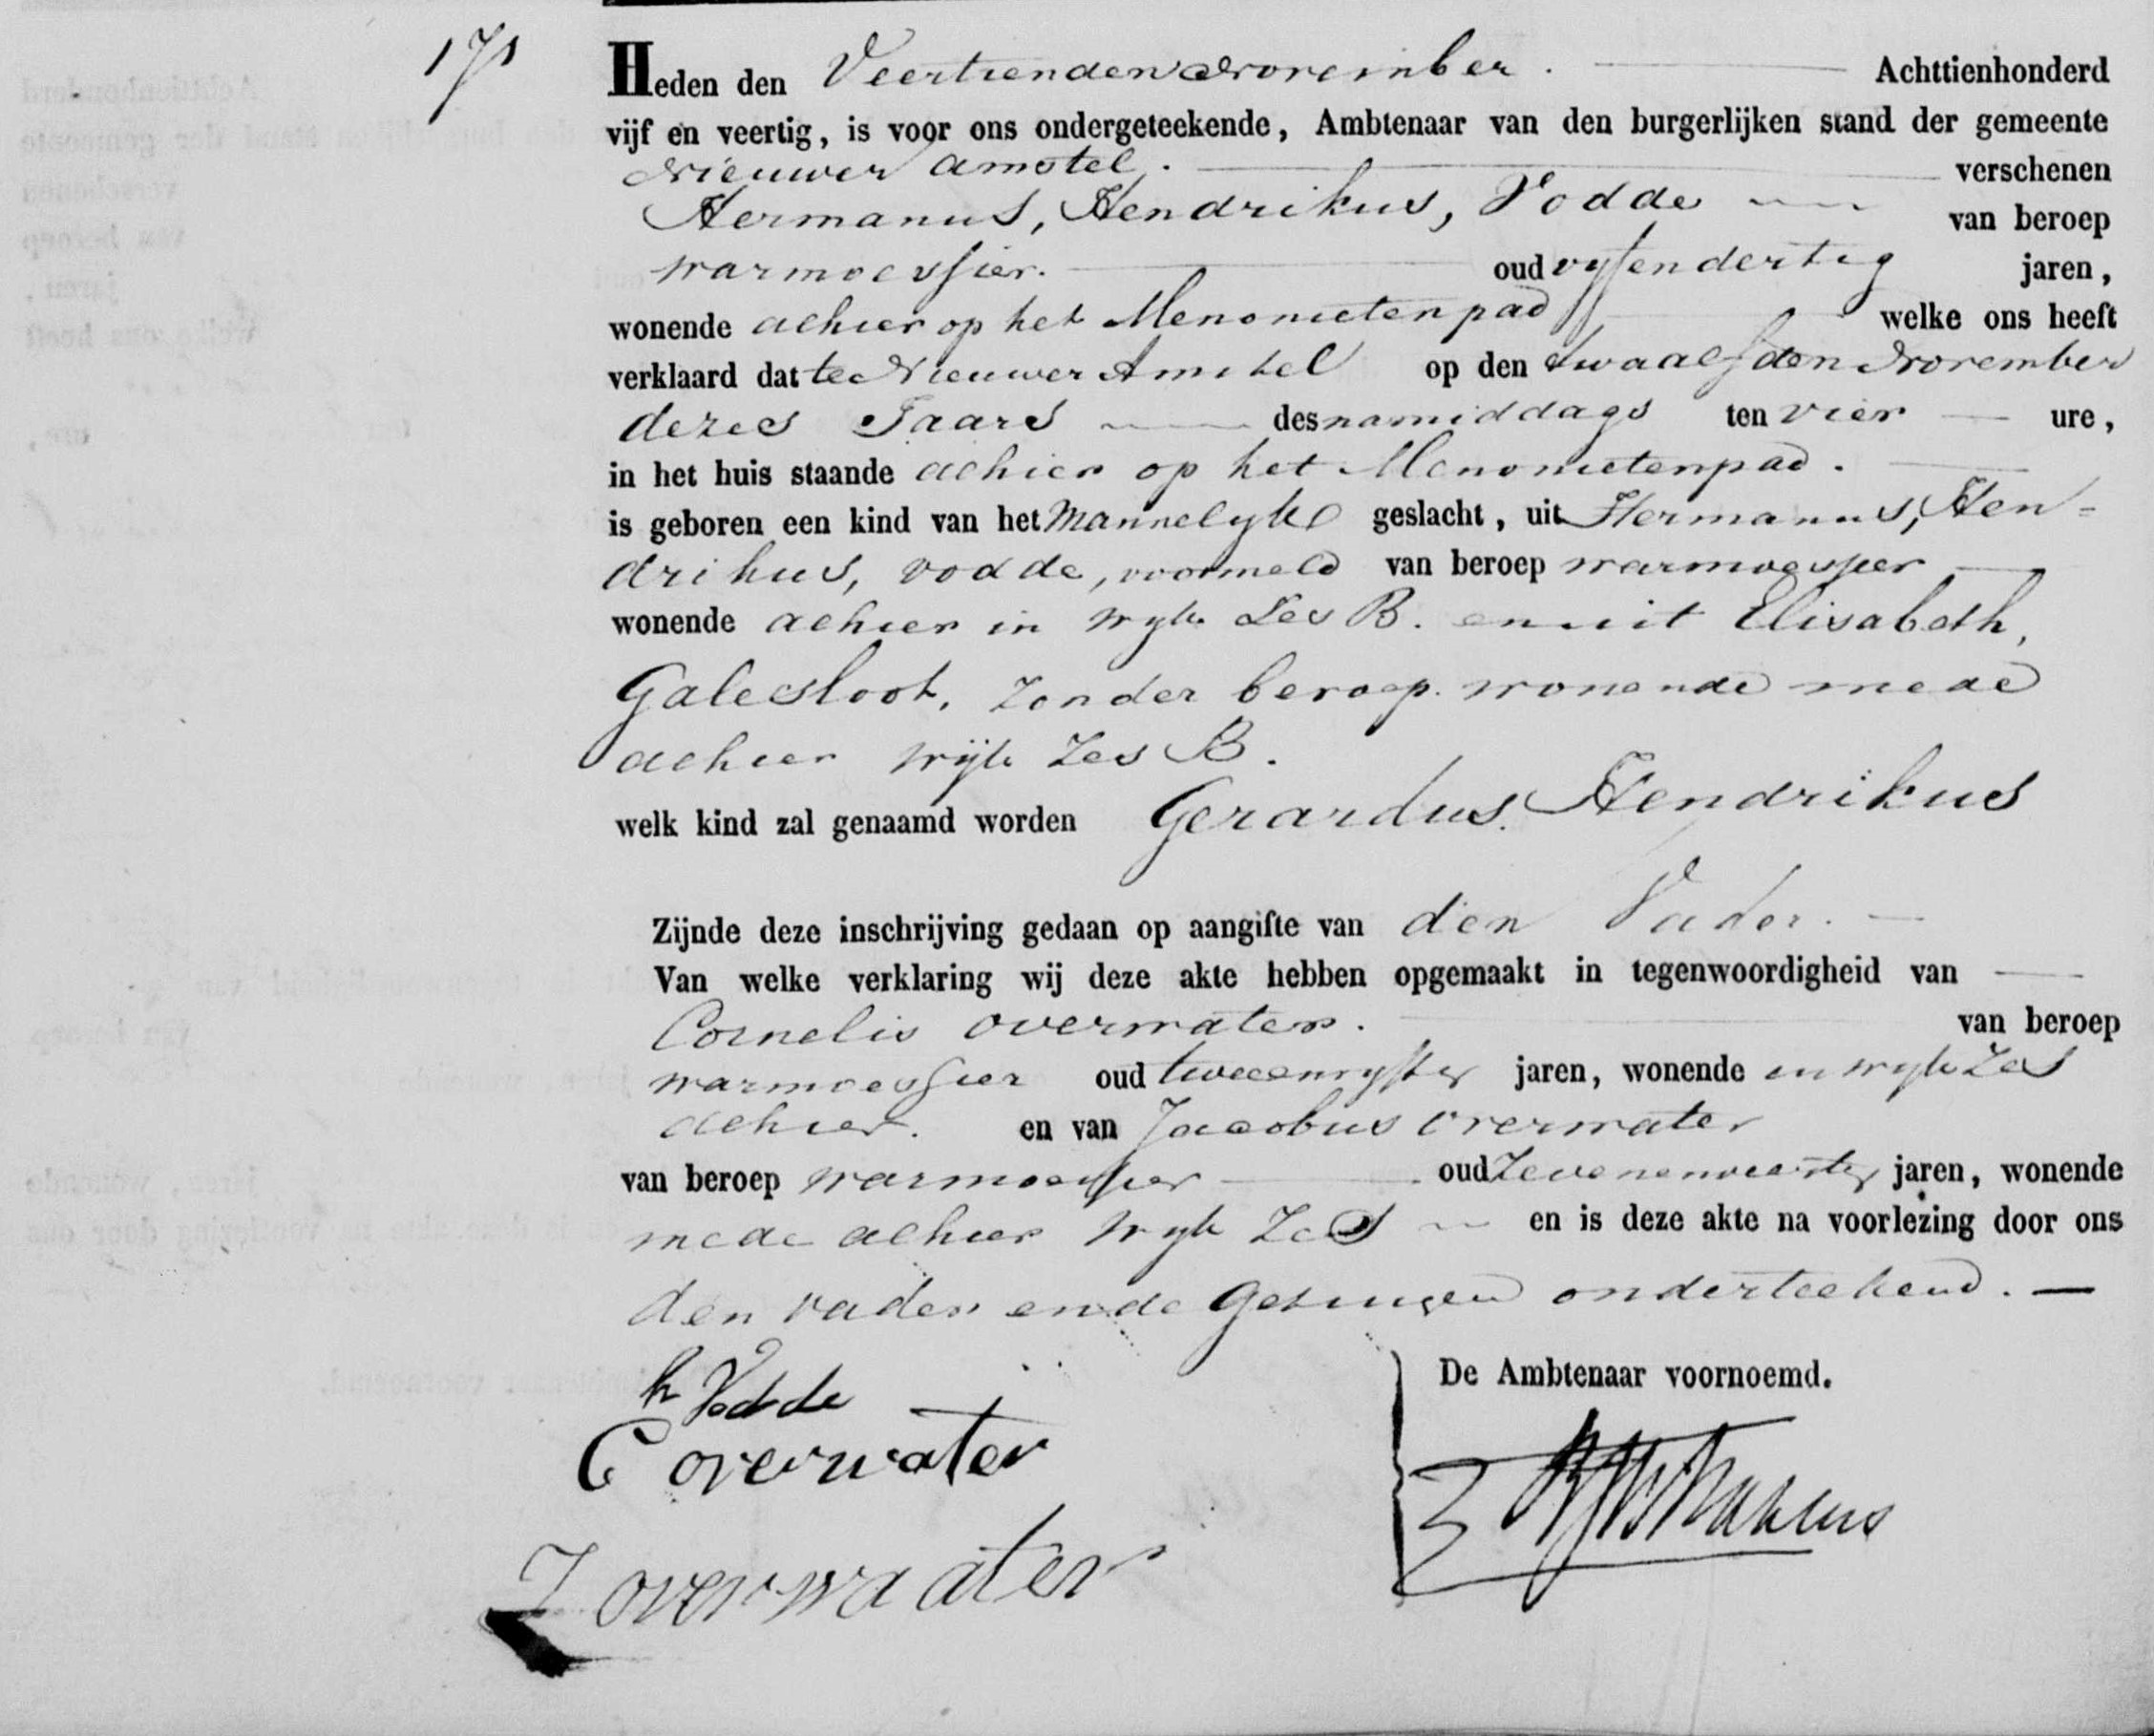 171
Heden den Veertienden November. Achttienhonderd
vijf en veertig, is voor ons ondergeteekende, Ambtenaar van den burgerlijken stand der gemeente
Nieuwer Amstel. verschenen
Hermanus, Hendrikus, Vodde van beroep
warmoessier. oud vyfendertig jaren,
wonende alhier op het Menonietenpad welke ons heeft
verklaard dat te Nieuwer Amstel op den twaalfden November
dezes Jaars des namiddags ten vier ure,
in het huis staande alhier op het Menonietenpad.
is geboren een kind van het Mannelyke geslacht, uit Hermanus, Hen-
drikus, vodde, voormeld van beroep warmoessier
wonende alhier in wyk Zes B. en uit Elisabeth,
Galesloot, zonder beroep. wonende mede
alhier wijk Zes B.
welk kind zal genaamd worden Gerardus. Hendrikus
Zijnde deze inschrijving gedaan op aangifte van den Vader.
Van welke verklaring wij deze akte hebben opgemaakt in tegenwoordigheid van
Cornelis overwater. van beroep
warmoessier oud tweeenvyftig jaren, wonende in wyk Zes
alhier. en van Jacobus overwater
van beroep warmoessier oud Zevenenveertig jaren, wonende
mede alhier wyk Zes en is deze akte na voorlezing door ons
den vader en de Getuigen onderteekend.
h Vodde De Ambtenaar voornoemd.
C overwater
J overwaater